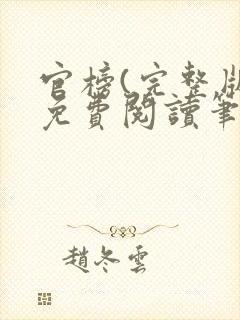 官榜(完整版
免費閱讀筆
趙冬雲